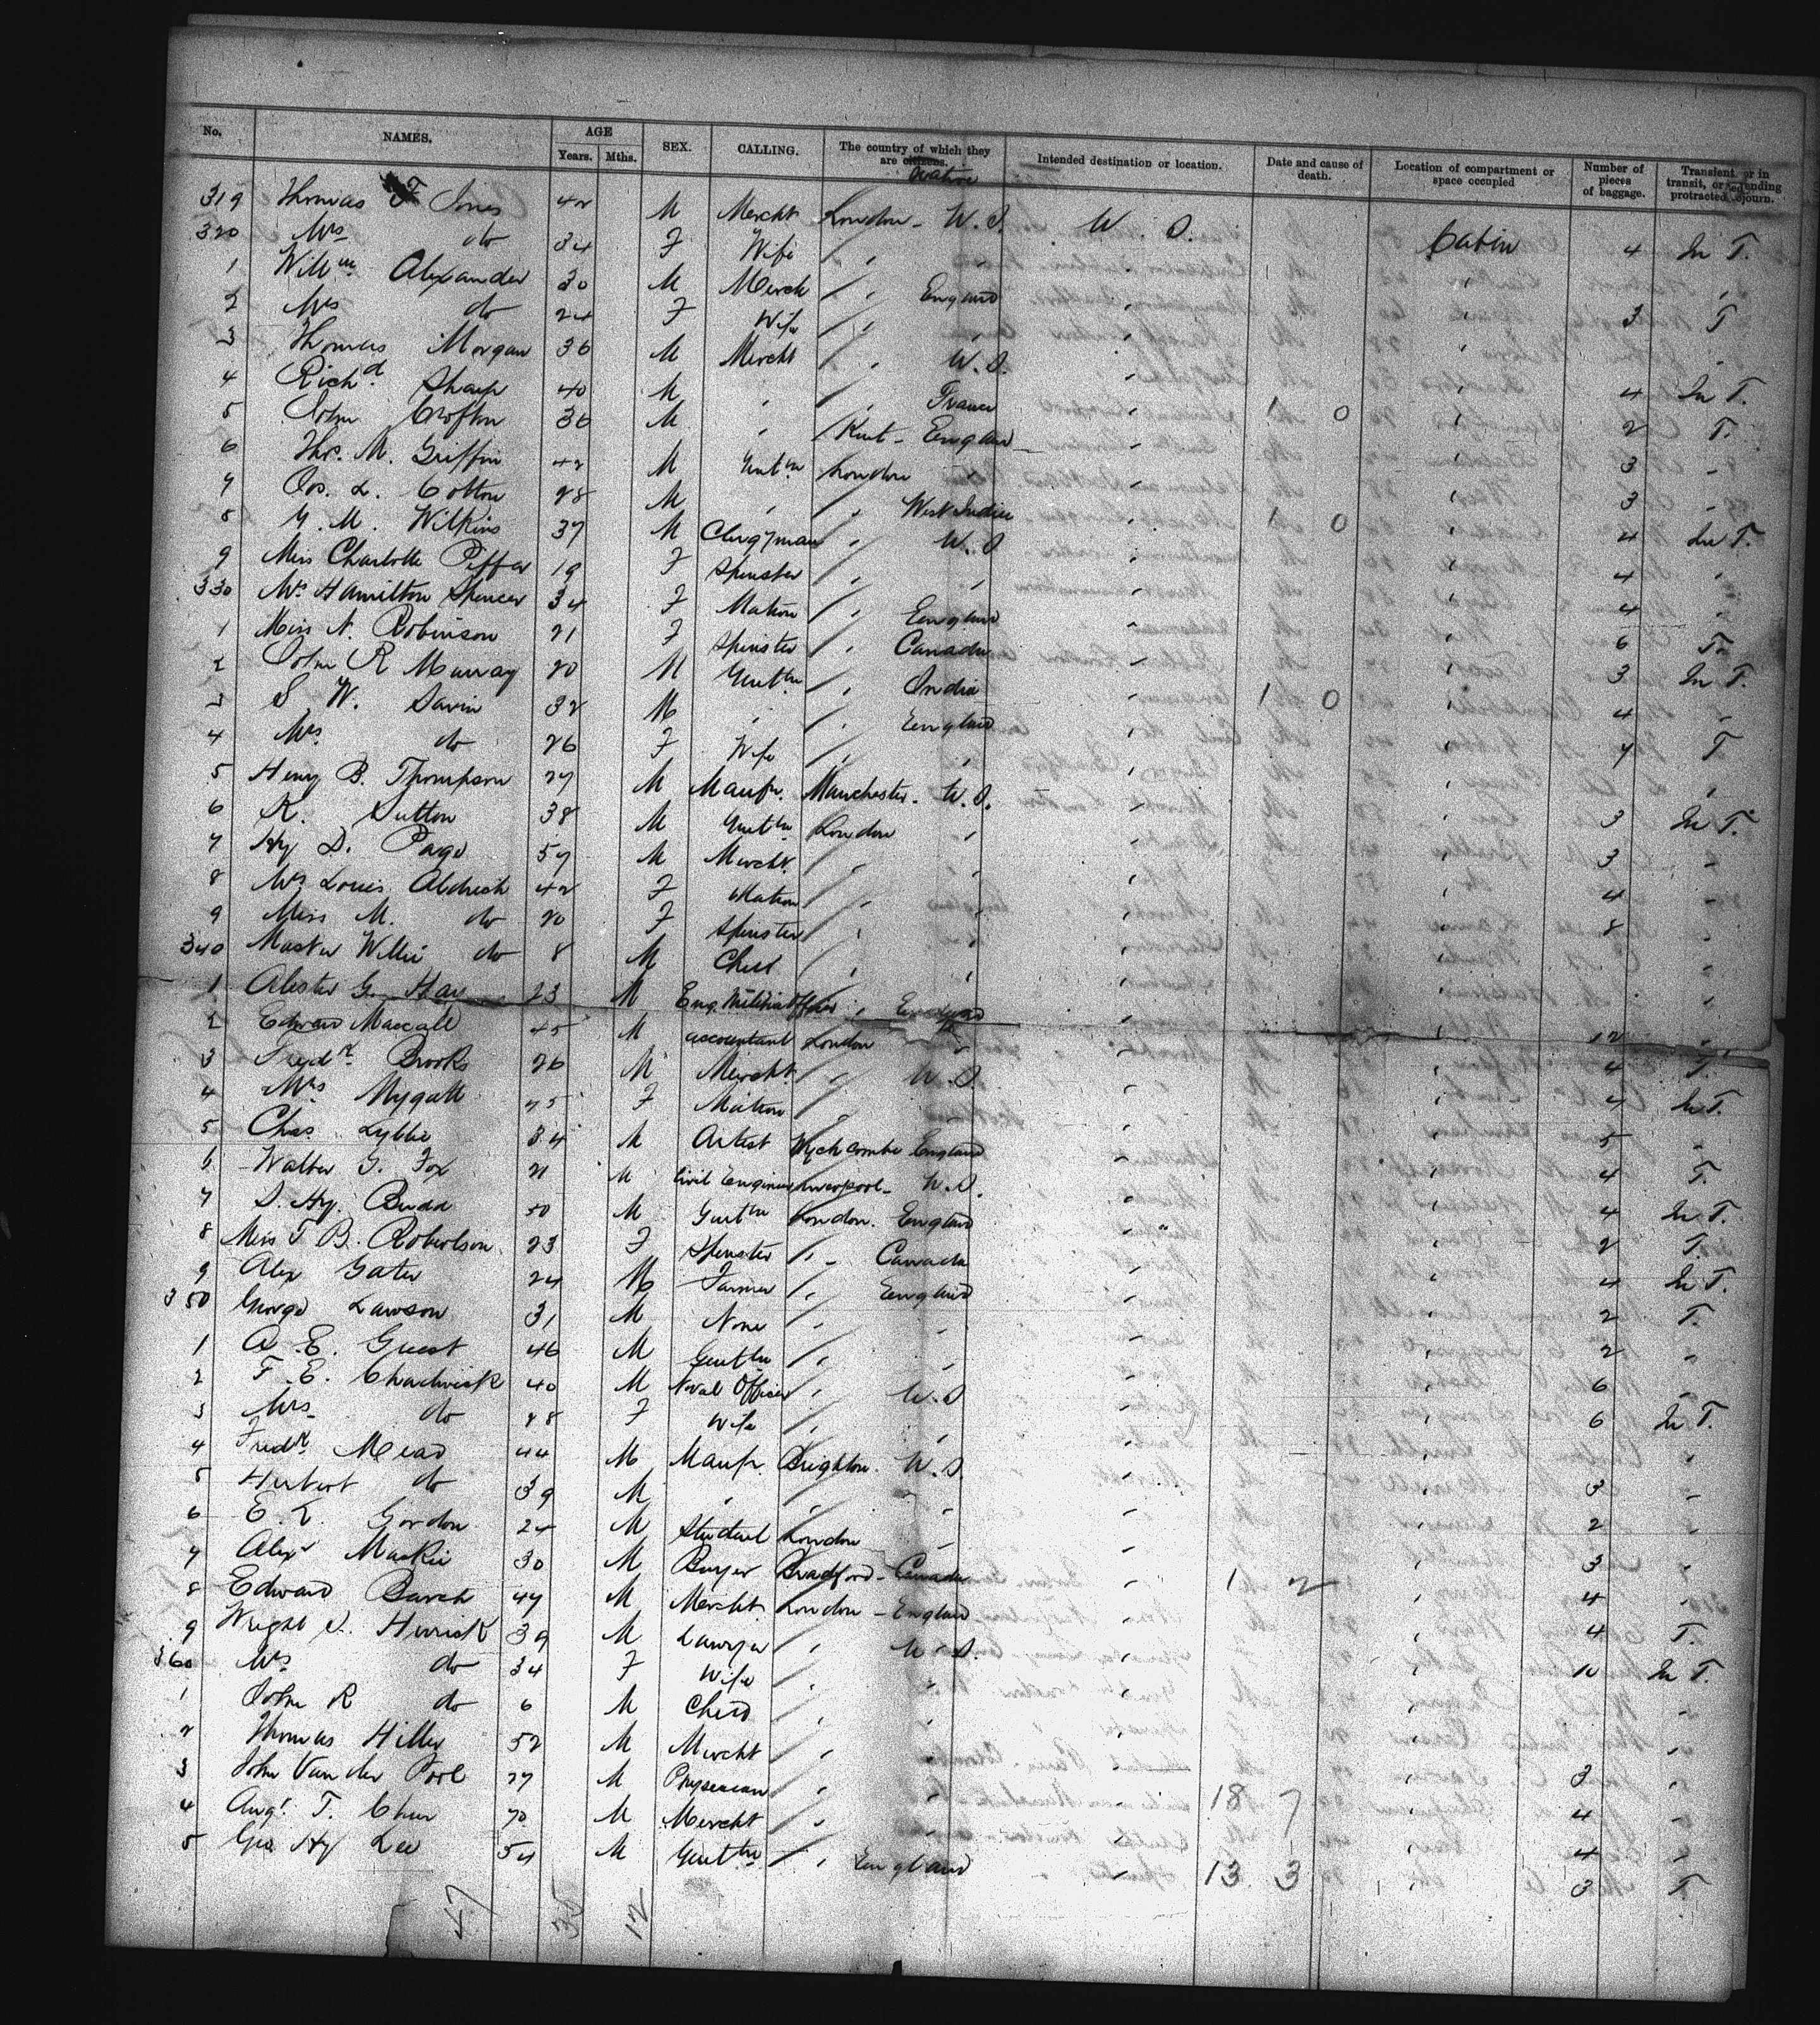 No. NAMES. AGE Years. Mths. SEX. CALLING. The country of which they are citizens. Native Intended destination or location. Date and cause of death. Location of compartment or space occupied Number of pieces of baggage. Transient, or in transit, or intending protracted sojourn.
319 Thomas F Jones 42 M Mercht London - W.S. U.S. Cabin 4 In T.
320 Mrs do 34 F Wife " " " " "
1 Willm Alexander 30 M Merch " England " " 3 T
2 Mrs do 24 F Wife " " " " "
3 Thomas Morgan 36 M Mercht " U.S. " " 4 In T.
4 Richd. Sharp 40 M " " France " 1 0 " 2 T.
5 John Crofton 36 M " Kent - England " " 3 "
6 Ths. M. Griffin 42 M Gentn London " " " 3 "
7 Jos. L. Cotton 28 M " " West Indies " 1 0 " 4 In T.
8 G. M. Wilkins 37 M Clergyman " U.S. " " 4 "
9 Miss Charlotte Peffer 19 F Spinster " " " " 4 "
330 Mrs. Hamilton Spencer 34 F Matron " England " " 6 T.
1 Miss N. Robinson 21 F Spinster " Canada " " 3 In T.
2 John R Murray 20 M Gentn " India " 1 0 " 4 "
3 S. W. Savin 32 M " " England " " 7 T
4 Mrs do 26 F Wife " " " " "
5 Henry B. Thompson 27 M Maufr. Manchester. U.S. " " 3 In T.
6 R. Sutton 38 M Gentn London " " " 3 "
7 Hy D. Page 57 M Mercht. " " " " 4 "
8 Mrs Louis Aldrich 42 F Matron " " " " 8 "
9 Miss M. do 20 F Spinster " " " " "
340 Master Willie do 8 M Child " " " " "
1 Alester G. Hay 23 M Eng. Militia Officer " England " " 12 "
2 Edward Mascall 45 M accountant London " " " 4 T.
3 Fredk. Brooks 26 M Mercht. " U.S. " " 4 In T.
4 Mrs Mygatt 45 F Matron " " " 5 "
5 Chas. Lyllie 34 M Artist Wychcombe England " " 4 T.
6 Walter G. Fox 21 M Civil Engineer Liverpool - U.S. " " 4 In T.
7 S. Hy. Budd 50 M Gentn London. England " " 2 T.
8 Miss T B. Robertson 23 F Spinster " Canada " " 4 In T.
9 Alex Gater 24 M Farmer " England " " 2 T.
350 George Lawson 31 M None " " " " 2 "
1 A. E. Guest 46 M Gentn " " " " 6 "
2 F. E. Chadwick 40 M Naval Officer " U.S " " 6 In T.
3 Mrs do 28 F Wife " " " " "
4 Fredk. Mead 44 M Maufr. Brighton. U.S. " " 3 "
5 Herbert do 39 M " " " " " 2 "
6 E. K. Gordon 24 M Student London " " " 3 "
7 Alexr Mackie 30 M Buyer Bradford - Canada " 1 2 " 4 "
8 Edward Burch 47 M Mercht. London - England " " 4 T.
9 Wright S. Herrick 39 M Lawyer " U.S. " " 10 In T.
360 Mrs do 34 F Wife " " " " "
1 John R do 6 M Child " " " " "
2 Thomas Hiller 52 M Mercht " " " " 3 "
3 John Van der Pool 27 M Physician " " " 18 7 " 4 "
4 Augt. T. Chur 70 M Mercht " " " " 4 "
5 Geo Hy Lee 54 M Gentn " England " 13 3 " 3 T.
47 35 12